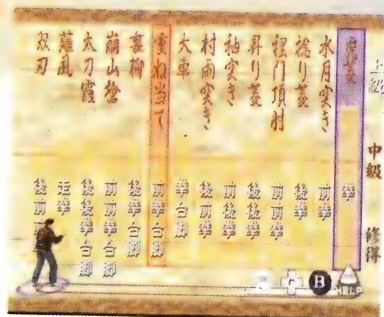 上級
中級
修得
拳
水月突き 前拳
捻り菱 後拳
裡門頂肘 前前拳
昇り菱 後後拳
袖突き 前後拳
村雨突き
大車 拳合脚
重ね当て 前拳合脚
裏柳 後拳合脚
崩山槍 前前拳合脚
太刀霞 後後拳合脚
走拳
後前
B
HELP